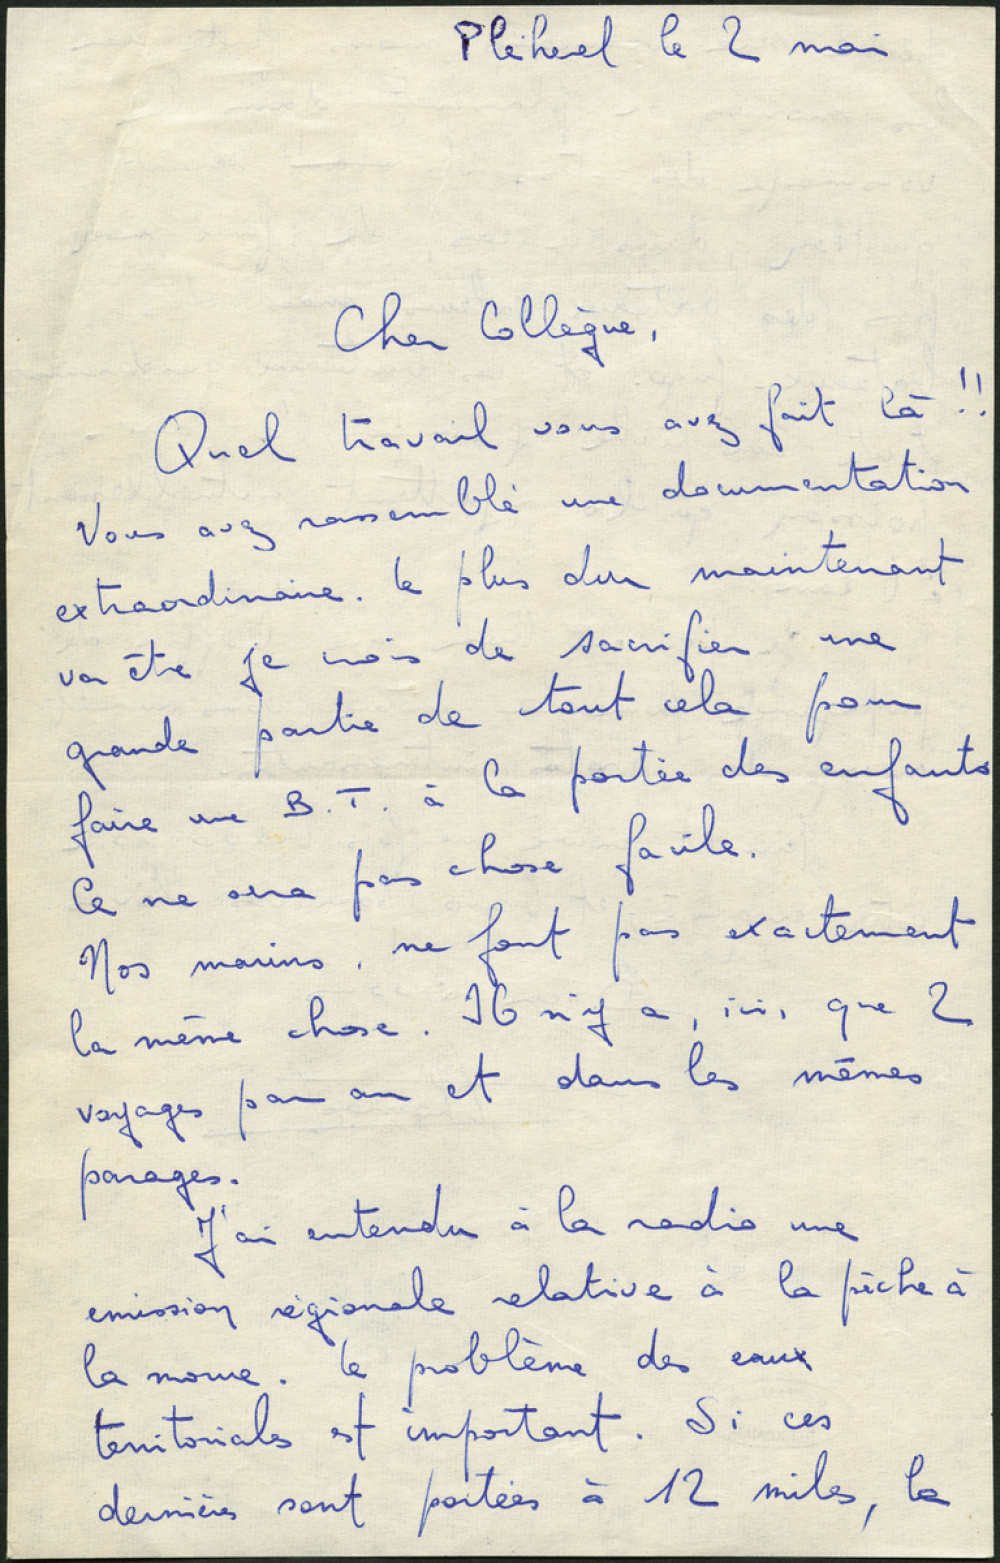 Pléherel le 2 mai
Cher Collègue,
Quel travail vous avez fait là !!
Vous avez rassemblé une documentation
extraordinaire. Le plus dur maintenant
va être je crois de sacrifier une
grande partie de tout cela pour
faire une B.T. à la portée des enfants
Ce ne sera pas chose facile.
Nos marins, ne font pas exactement
la même chose. Il n'y a, ici, que 2
voyages par an et dans les mêmes
parages.
J'ai entendu à la radio une
emission régionale relative à la pêche à
la morue. Le problème des eaux
territoriales est important. Si ces
dernières sont portées à 12 miles, la